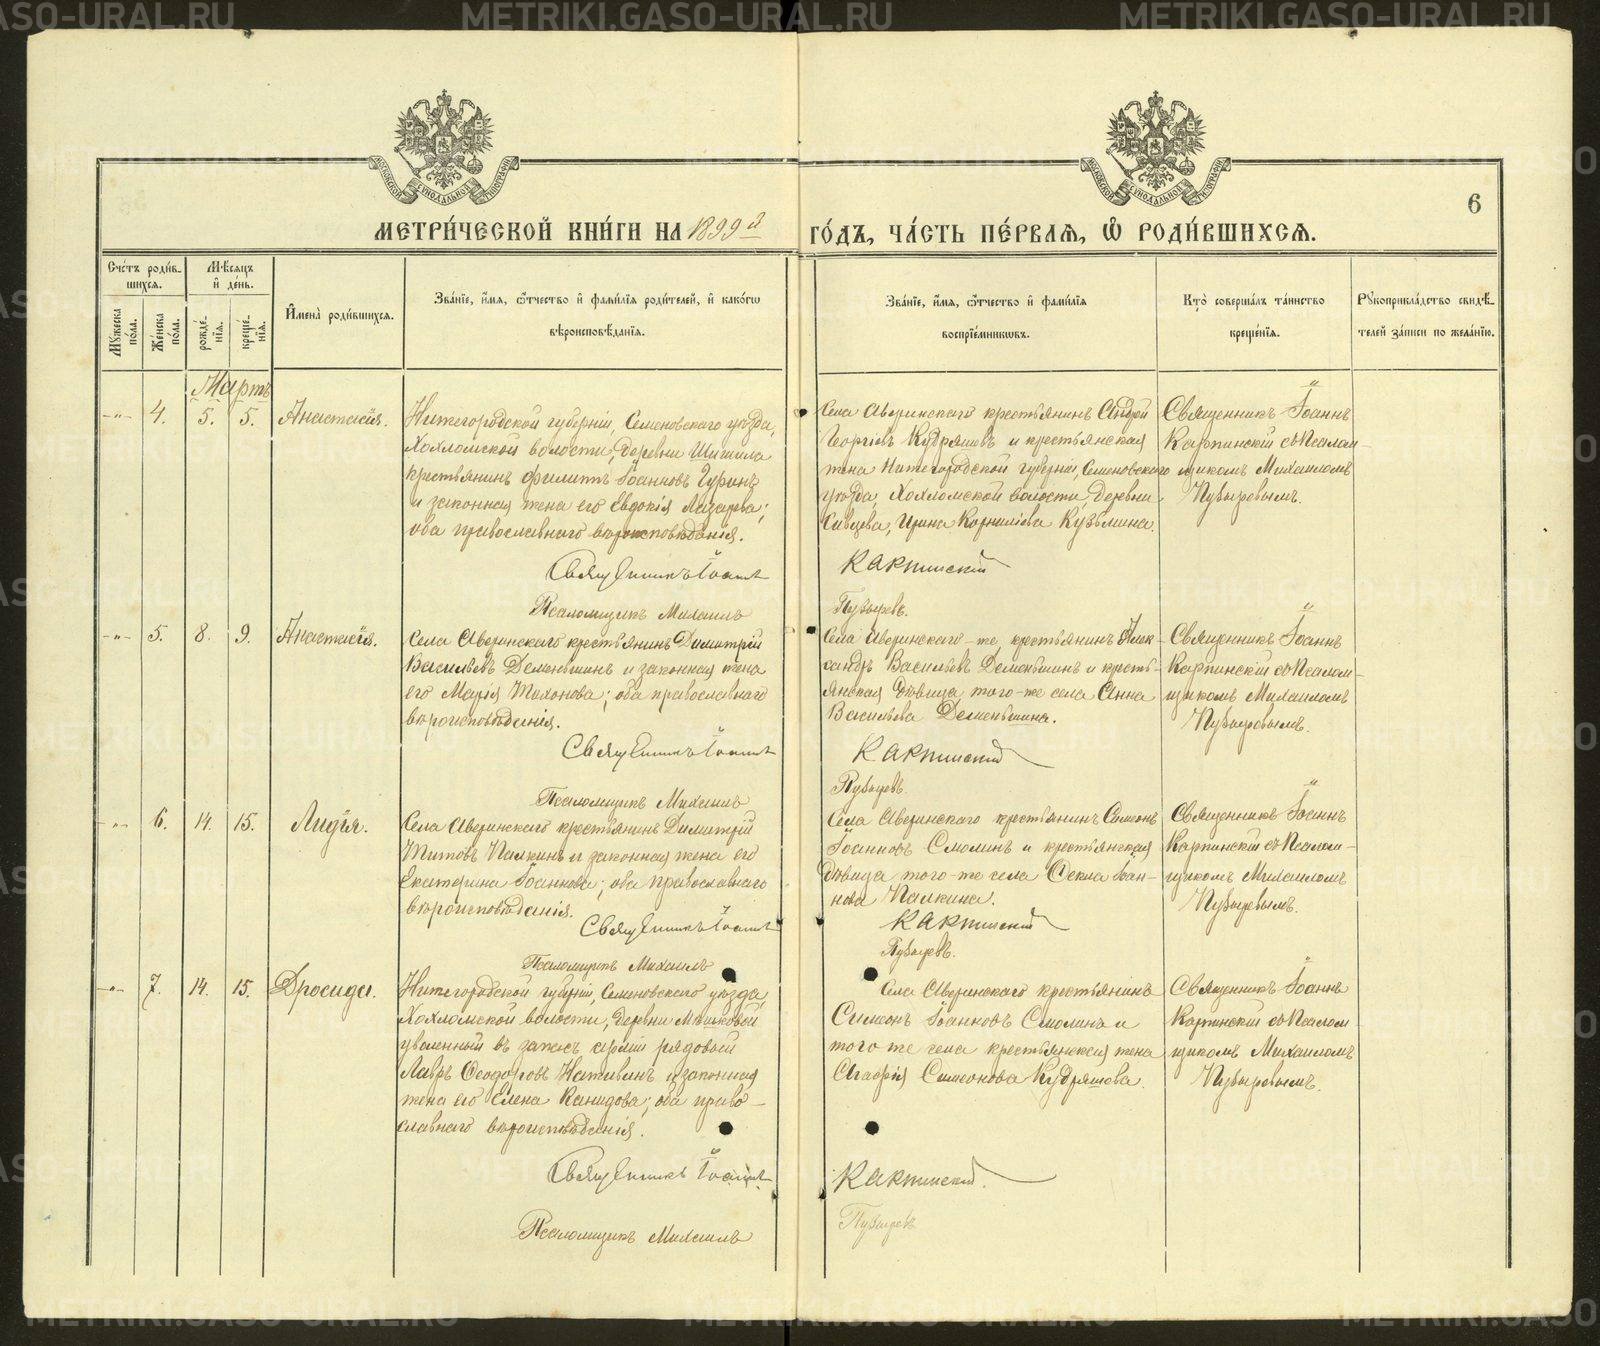 МЕТРИ́ЧЕСКОЙ КНИ́ГИ НА 1899й ГО́ДЪ, ЧА́СТЬ ПЕ́РВАЯ, Ѡ РОДИ́ВШИХСЯ.
6
Сче́тъ роди́в-
шихся.
Мѣ́сяцъ
и де́нь.
Мꙋ́жеска по́ла.
Же́нска по́ла.
рожде́-
нїя.
креще́-
нїя.
И҆мена̀ роди́вшихся.
Зва́нїе, и҆́мя, ѻ҆́тчество и҆ фами́лїя роди́телей, и҆ како́гѡ
вѣроисповѣ́данїя.
Зва́нїе, и҆́мя, ѻ҆́тчество и҆ фами́лїя
воспрїе́мникѡвъ.
Кто̀ соверша́лъ та́инство
креще́нїя.
Рꙋкоприкла́дство свидѣ́-
телей за́писи по жела́нїю.
Мартъ
-"- 4. 5. 5. Анастасія.
Нижегородской губерніи, Семеновскаго уѣзда,
Хохломской волости, деревни Шишила
крестьянинъ Филиппъ Іоанновъ Гуринъ
и законная жена его Евдокія Лазарева;
оба православнаго вѣроисповѣданія.
Священникъ Іоаннъ
Псаломщикъ Михаилъ
Села Аверинскаго крестьянинъ Андрей
Георгіевъ Кудряшевъ и крестьянская
жена Нижегородской губерніи, Семеновскаго
уѣзда, Хохломской волости, деревни
Сивцева, Ирина Корниліева Кузьмина.
Карпинскій
Пузыревъ.
Священникъ Іоаннъ
Карпинскій съ Псалом-
щикомъ Михаиломъ
Пузыревымъ.
-"- 5. 8. 9. Анастасія.
Села Аверинскаго крестьянинъ Димитрій
Васильевъ Деменьшинъ и законная жена
его Марія Тихонова; оба православнаго
вѣроисповѣданія.
Священникъ Іоаннъ
Псаломщикъ Михаилъ
Села Аверинскаго-же крестьянинъ Алек-
сандръ Васильевъ Деменьшинъ и кресть-
янская дѣвица того-же села Анна
Васильева Деменьшина.
Карпинскій
Пузыревъ.
Священникъ Іоаннъ
Карпинскій съ Псалом-
щикомъ Михаиломъ
Пузыревымъ.
-"- 6. 14. 15. Лидія.
Села Аверинскаго крестьянинъ Димитрій
Титовъ Палкинъ и законная жена его
Екатерина Іоаннова; оба православнаго
вѣроисповѣданія.
Священникъ Іоаннъ
Псаломщикъ Михаилъ
Села Аверинскаго крестьянинъ Симеонъ
Іоанновъ Смолинъ и крестьянская
дѣвица того-же села Ѳекла Іоан-
нова Палкина.
Карпинскій
Пузыревъ.
Священникъ Іоаннъ
Карпинскій съ Псалом-
щикомъ Михаиломъ
Пузыревымъ.
-"- 7. 14. 15. Дросида.
Нижегородской губерніи, Семеновскаго уѣзда,
Хохломской волости, деревни Мошковой
уволенный въ запасъ арміи рядовой
Лавръ Ѳеодоровъ Нативинъ и законная
жена его Елена Канидова; оба право-
славнаго вѣроисповѣданія.
Священникъ Іоаннъ
Псаломщикъ Михаилъ
Села Аверинскаго крестьянинъ
Симеонъ Іоанновъ Смолинъ и
того же села крестьянская жена
Агафія Симеонова Кудряшова.
Карпинскій.
Пузыревъ
Священникъ Іоаннъ
Карпинскій съ Псалом-
щикомъ Михаиломъ
Пузыревымъ.
METRIKI.GASO-URAL.RU